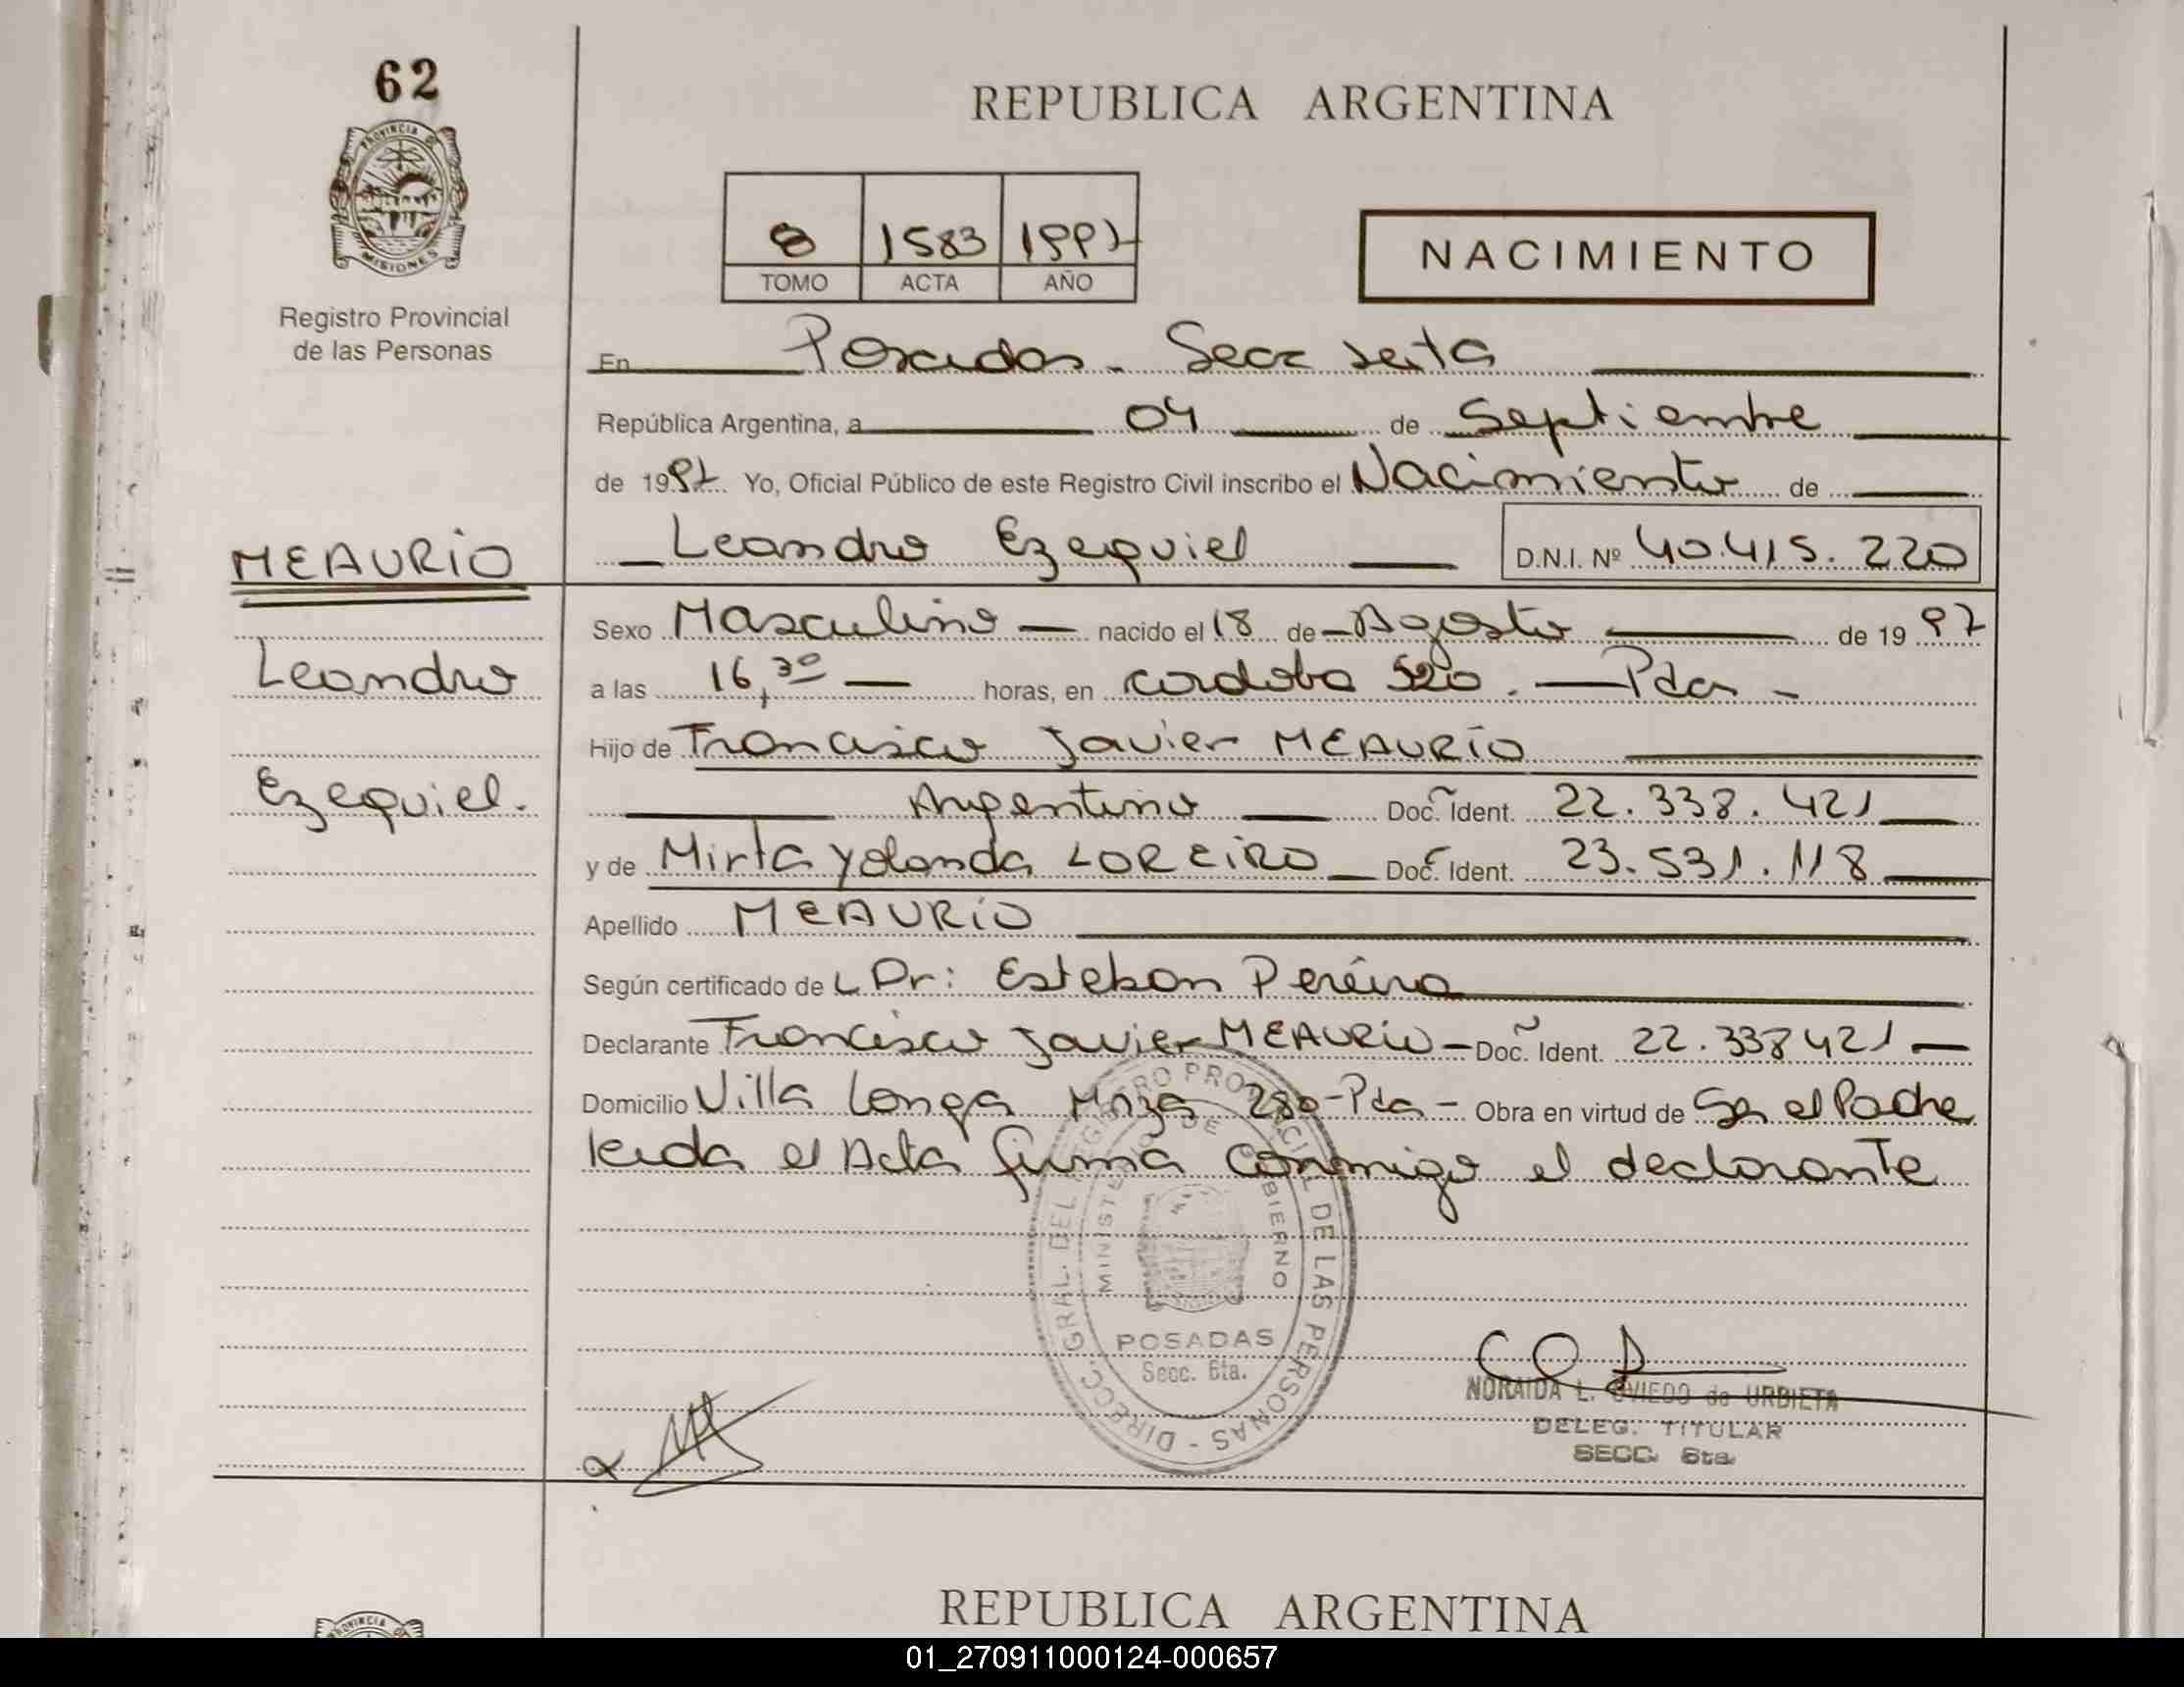 62
PROVINCIA DE
MISIONES
Registro Provincial
de las Personas
REPUBLICA ARGENTINA
8 1583 1997
TOMO ACTA AÑO
NACIMIENTO
En Posadas - Secc sexta
República Argentina, a 04 de Septiembre
de 1997 Yo, Oficial Público de este Registro Civil inscribo el Nacimiento de
Leandro Ezequiel D.N.I. Nº 40.415.220
MEAURIO
Leandro
Ezequiel.
Sexo Masculino nacido el 18 de Agosto de 1997
a las 16,30 horas, en cordoba 520. - Pdas -
Hijo de Francisco Javier MEAURIO
Argentino Doc. Ident. 22.338.421
y de Mirta Yolanda LOREIRO Doc. Ident. 23.531.118
Apellido MEAURIO
Según certificado de L Dr: Esteban Pereira
Declarante Francisco Javier MEAURIO - Doc. Ident. 22.338421
Domicilio Villa Longa Mnza 280 - Pdas - Obra en virtud de Ser el Padre
leida el Acta firma conmigo el declarante
DIRECC. GRAL. DEL REGISTRO PROVINCIAL DE LAS PERSONAS -
MINISTERIO DE GOBIERNO
POSADAS
Secc. 6ta.
NORAIDA L. OVIEDO de URBIETA
DELEG. TITULAR
SECC. 6ta.
REPUBLICA ARGENTINA
PROVINCIA
01_270911000124-000657